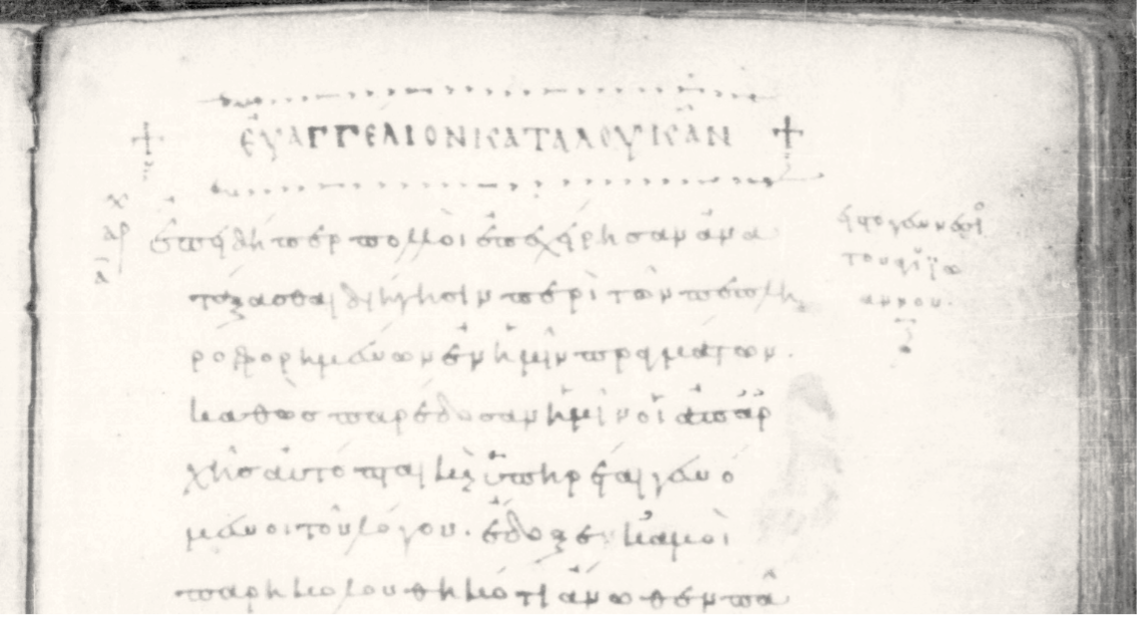 ΕΥΑΓΓΕΛΙΟΝ ΚΑΤΑ ΛΟΥΚΑΝ
ἐπειδήπερ πολλοὶ ἐπεχείρησαν ἀνα
τάξασθαι διήγησιν περὶ τῶν πεπλη
ροφορημένων ἐν ἡμῖν πραγμάτων.
καθὼς παρέδοσαν ἡμῖν οἱ ἀπαρ
χῆς αὐτόπται καὶ ὑπηρέται γενό
μενοι τοῦ λόγου. ἔδοξε κἀμοὶ
παρηκολουθηκότι ἄνωθεν πᾶ